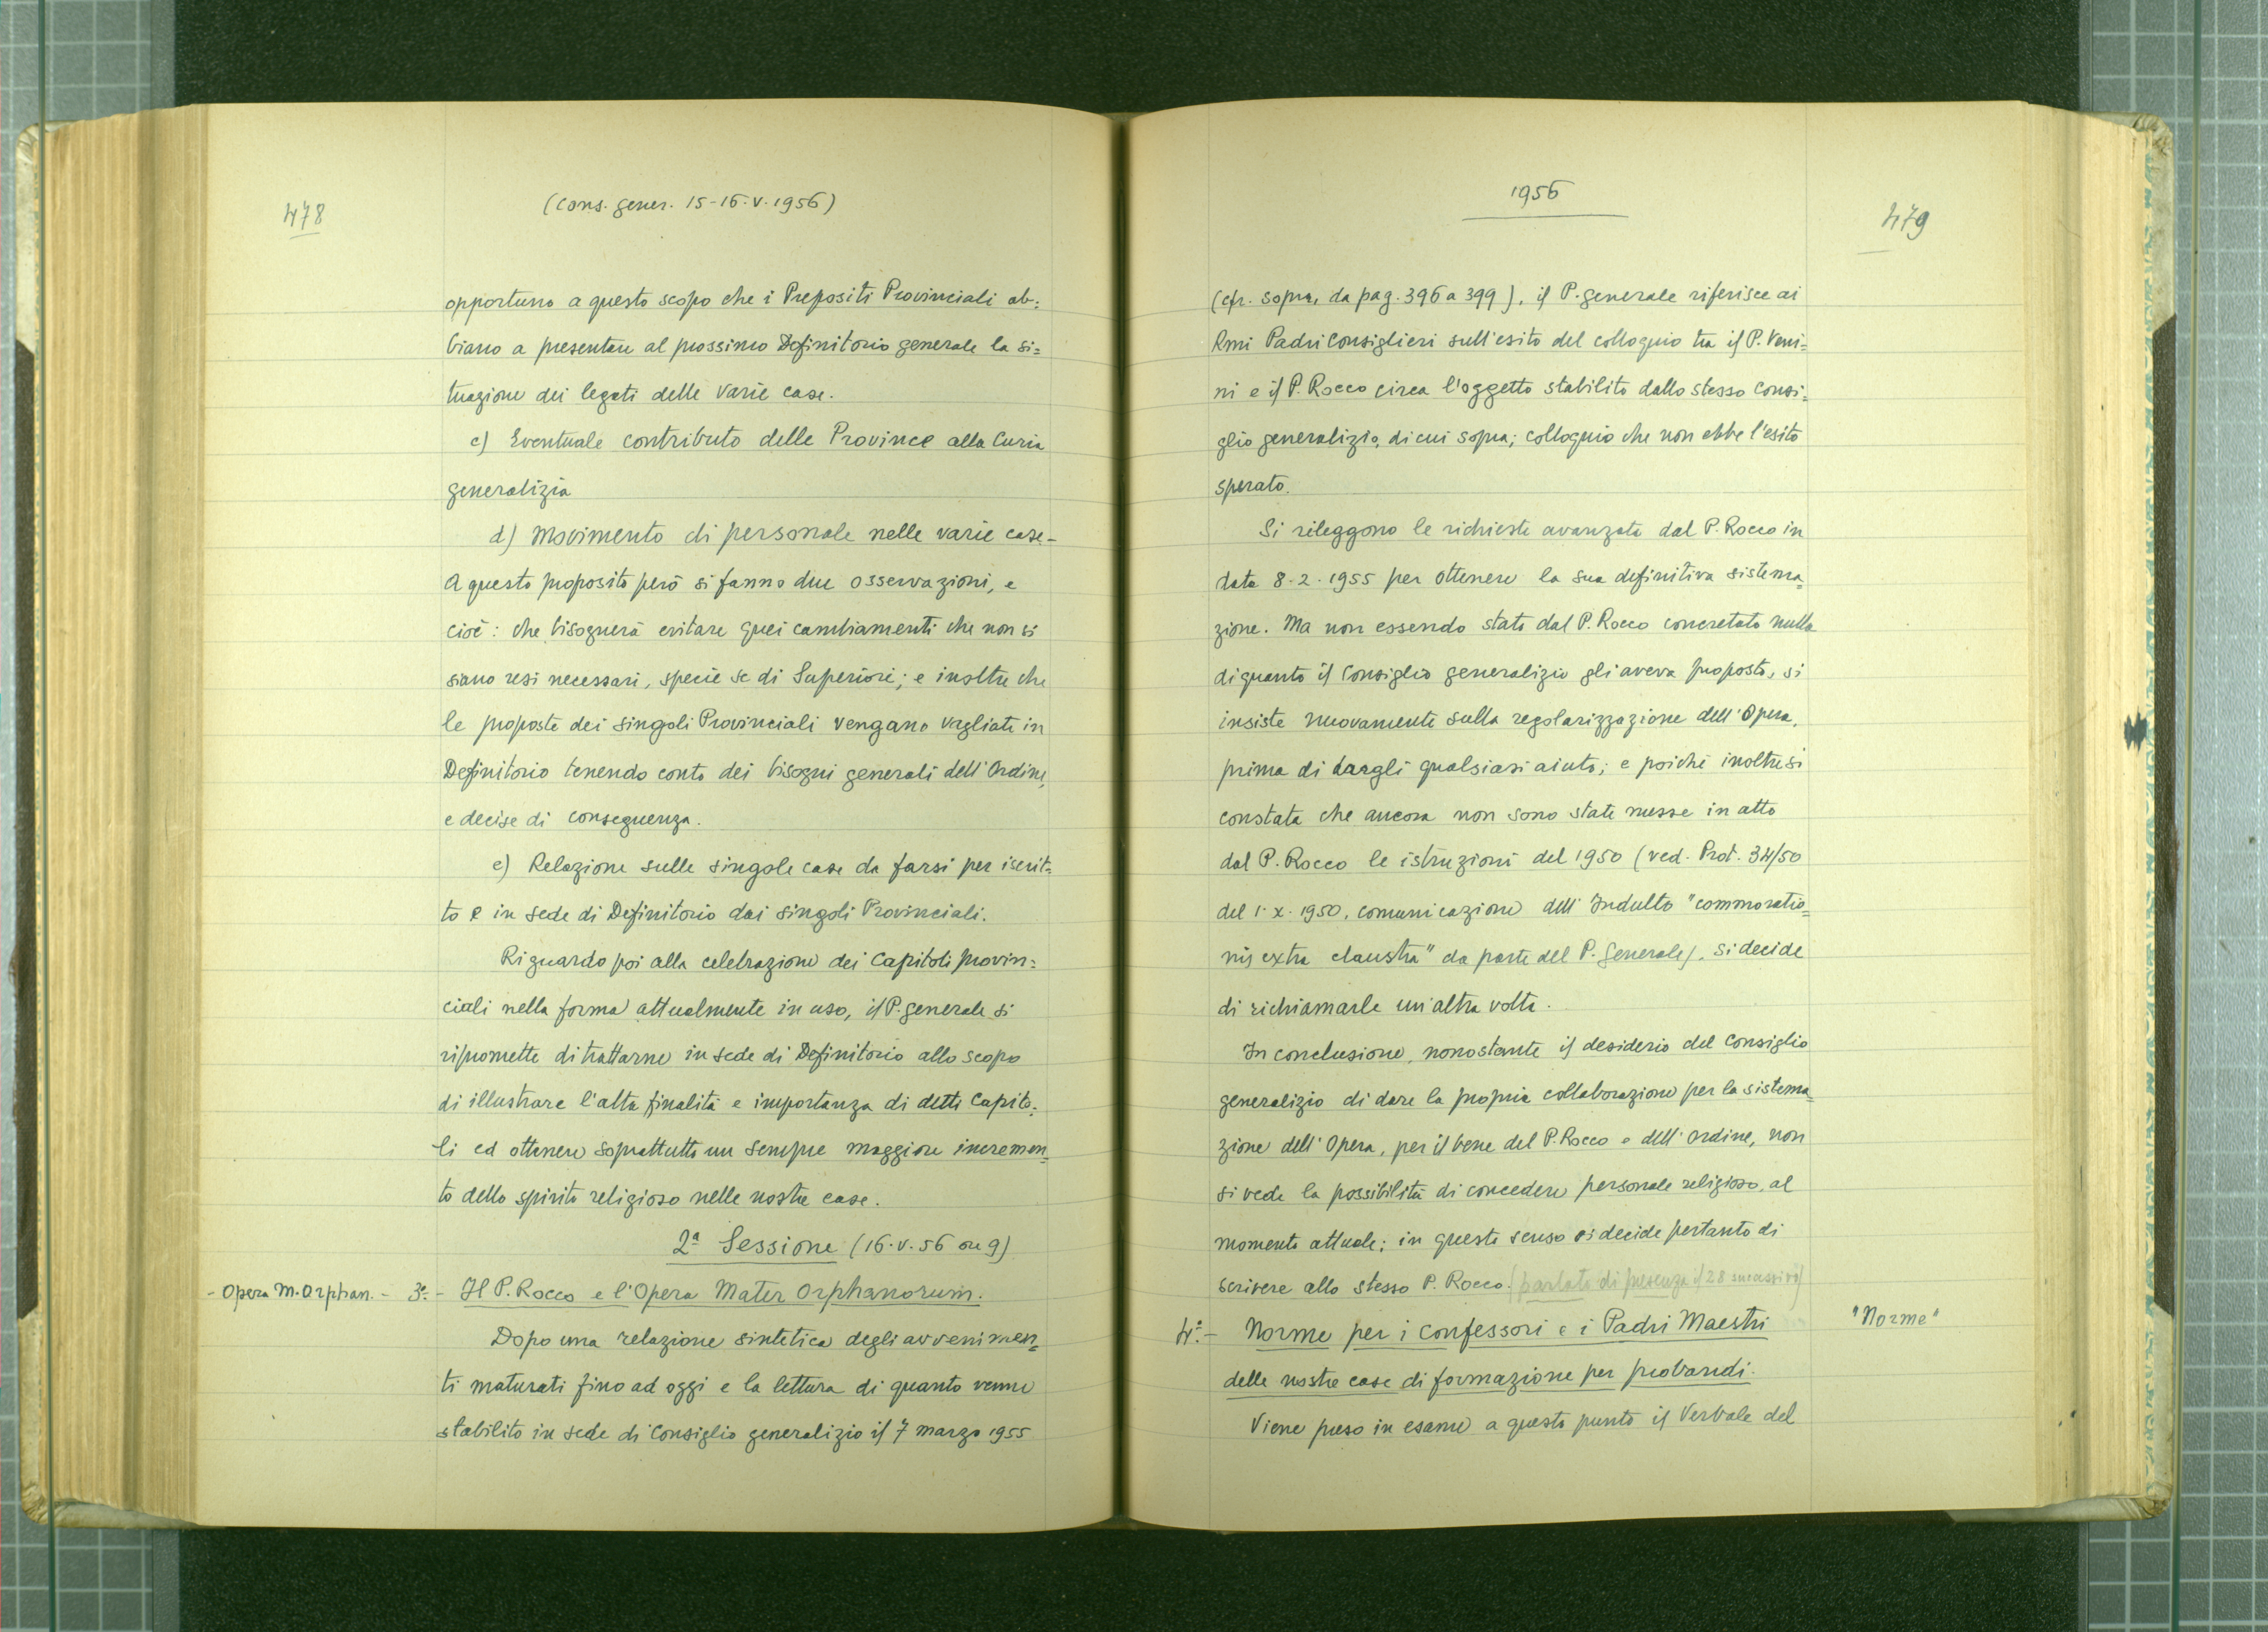 478
(Cons. gener. 15-16.V.1956)
opportuno a questo scopo che i Prepositi Provinciali ab=
biano a presentare al prossimo Definitorio generale la si=
tuazione dei legati delle varie case.
c) Eventuale contributo delle Province alla Curia
generalizia
d) Movimento di personale nelle varie case-
A questo proposito però si fanno due osservazioni, e
cioè: che bisognerà evitare quei cambiamenti che non si
siano resi necessari, specie se di Superiori; e inoltre che
le proposte dei singoli Provinciali vengano vagliate in
Definitorio tenendo conto dei bisogni generali dell'Ordine,
e decise di conseguenza.
e) Relazione sulle singole case da farsi per iscrit=
to e in sede di Definitorio dai singoli Provinciali.
Riguardo poi alla celebrazione dei Capitoli provin=
ciali nella forma attualmente in uso, il P. generale si
ripromette di trattarne in sede di Definitorio allo scopo
di illustrare l'alta finalità e importanza di detti Capito=
li ed ottenere soprattutto un sempre maggiore incremen=
to dello spirito religioso nelle nostre case.
2ª Sessione (16.V.56 ore 9)
- Opera M. Orphan. - 3º.- Il P. Rocco e l'Opera Mater Orphanorum.
Dopo una relazione sintetica degli avvenimen=
ti maturati fino ad oggi e la lettura di quanto venne
stabilito in sede di Consiglio generalizio il 7 marzo 1955
1956
479
(cfr. sopra, da pag. 396 a 399), il P. generale riferisce ai
Rmi Padri Consiglieri sull'esito del colloquio tra il P. Veni=
ni e il P. Rocco circa l'oggetto stabilito dallo stesso Consi=
glio generalizio, di cui sopra; colloquio che non ebbe l'esito
sperato.
Si rileggono le richieste avanzate dal P. Rocco in
data 8.2.1955 per ottenere la sua definitiva sistema=
zione. Ma non essendo stato dal P. Rocco concretato nulla
di quanto il Consiglio generalizio gli aveva proposto, si
insiste nuovamente sulla regolarizzazione dell'Opera,
prima di dargli qualsiasi aiuto; e poiché inoltre si
constata che ancora non sono state messe in atto
dal P. Rocco le istruzioni del 1950 (ved. Prot. 34/50
del 1.X.1950, comunicazione dell'Indulto "commoratio=
nis extra claustra" da parte del P. Generale), si decide
di richiamarle un'altra volta.
In conclusione, nonostante il desiderio del Consiglio
generalizio di dare la propria collaborazione per la sistema=
zione dell'Opera, per il bene del P. Rocco e dell'Ordine, non
si vede la possibilità di concedere personale religioso, al
momento attuale; in questo senso si decide pertanto di
scrivere allo stesso P. Rocco. (parlato di presenza il 28 successivo)
4º.- Norme per i Confessori e i Padri Maestri
"Norme"
delle nostre case di formazione per probandi.
Viene preso in esame a questo punto il Verbale del